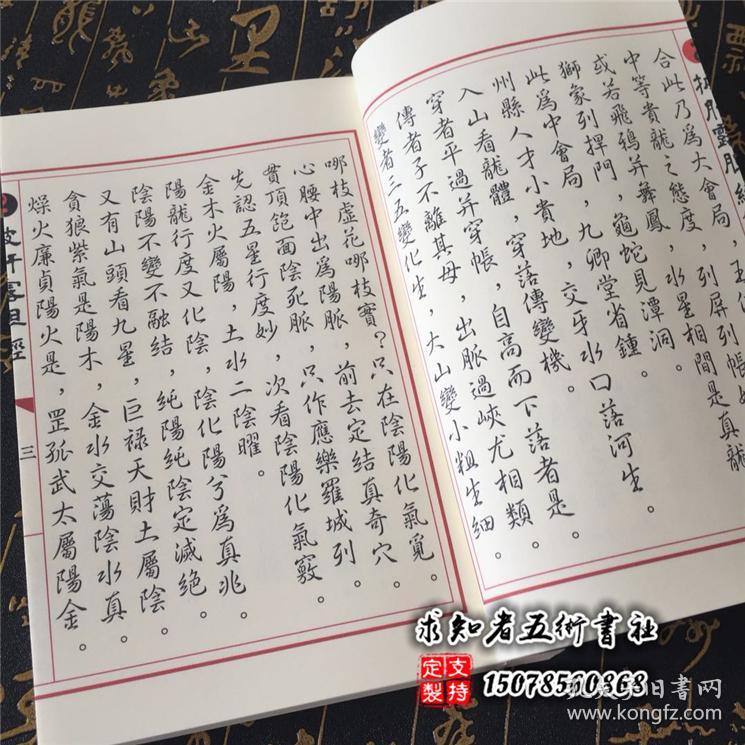 合此乃爲大會局,
列屏列帳
中等貴龍之態度,水星相間是真龍
或若飛鴉并舞鳳,龜蛇見潭洞。
獅象列捍門,九卿堂省鍾。
此爲中會局,交牙水口落河生。
州縣人才小貴地,穿落傳變機。
入山看龍體,自高而下落者是。
穿者平過并穿帳,出脈過峽尤相類。
傳者子不離其母,大山變小粗生細。
變者二五變化生,
哪枝虛花哪枝實?只在陰陽化氣覓。
心腰中出爲陽脈,前去定結真奇穴。
貫頂飽面陰死脈,只作應樂羅城列。
先認五星行度妙,次看陰陽化氣竅。
金木火屬陽,土水二陰曜。
陽龍行度又化陰,陰化陽兮爲真兆。
陰陽不變不融結,純陽純陰定滅絕。
又有山頭看九星,巨禄天財土屬陰。
貪狼紫氣是陽木,金水交蕩陰水真。
燥火廉貞陽火是,罡孤武太屬陽金。
三
求知者五術書社
支持定製
15078510868
孔夫子旧書网
www.kongfz.com